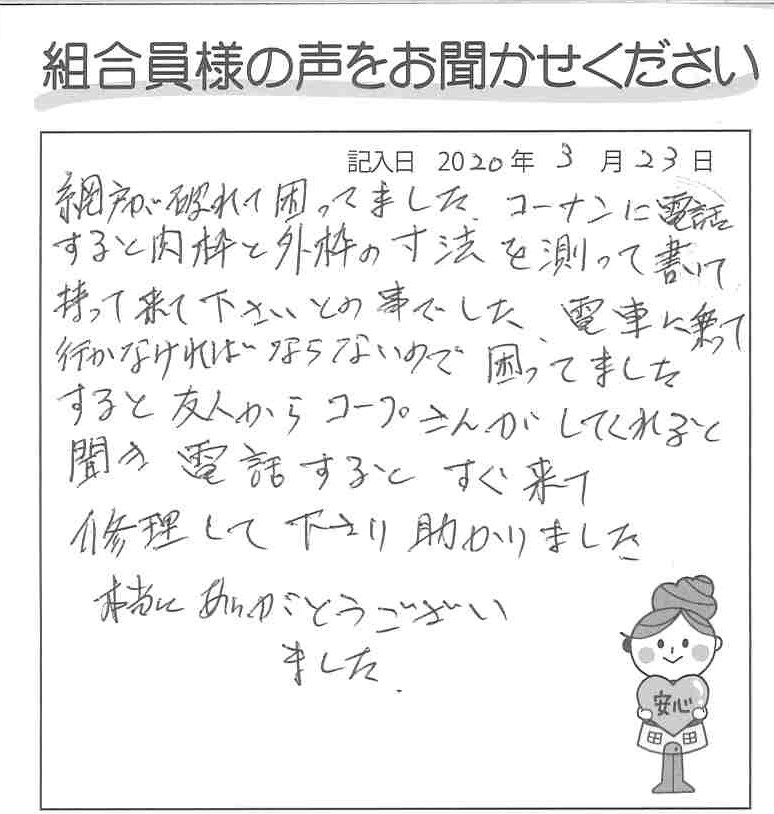 組合員様の声をお聞かせください
記入日 2020年 3月23日
網戸が破れて困ってました。コーナンに電話
すると内枠と外枠の寸法を測って書いて
持って来て下さいとの事でした、電車に乗って
行かなければならないので困ってました
すると友人からコープさんがしてくれると
聞き電話するとすぐ来て
修理して下さり助かりました
本当にありがとうござい
ました.
安心